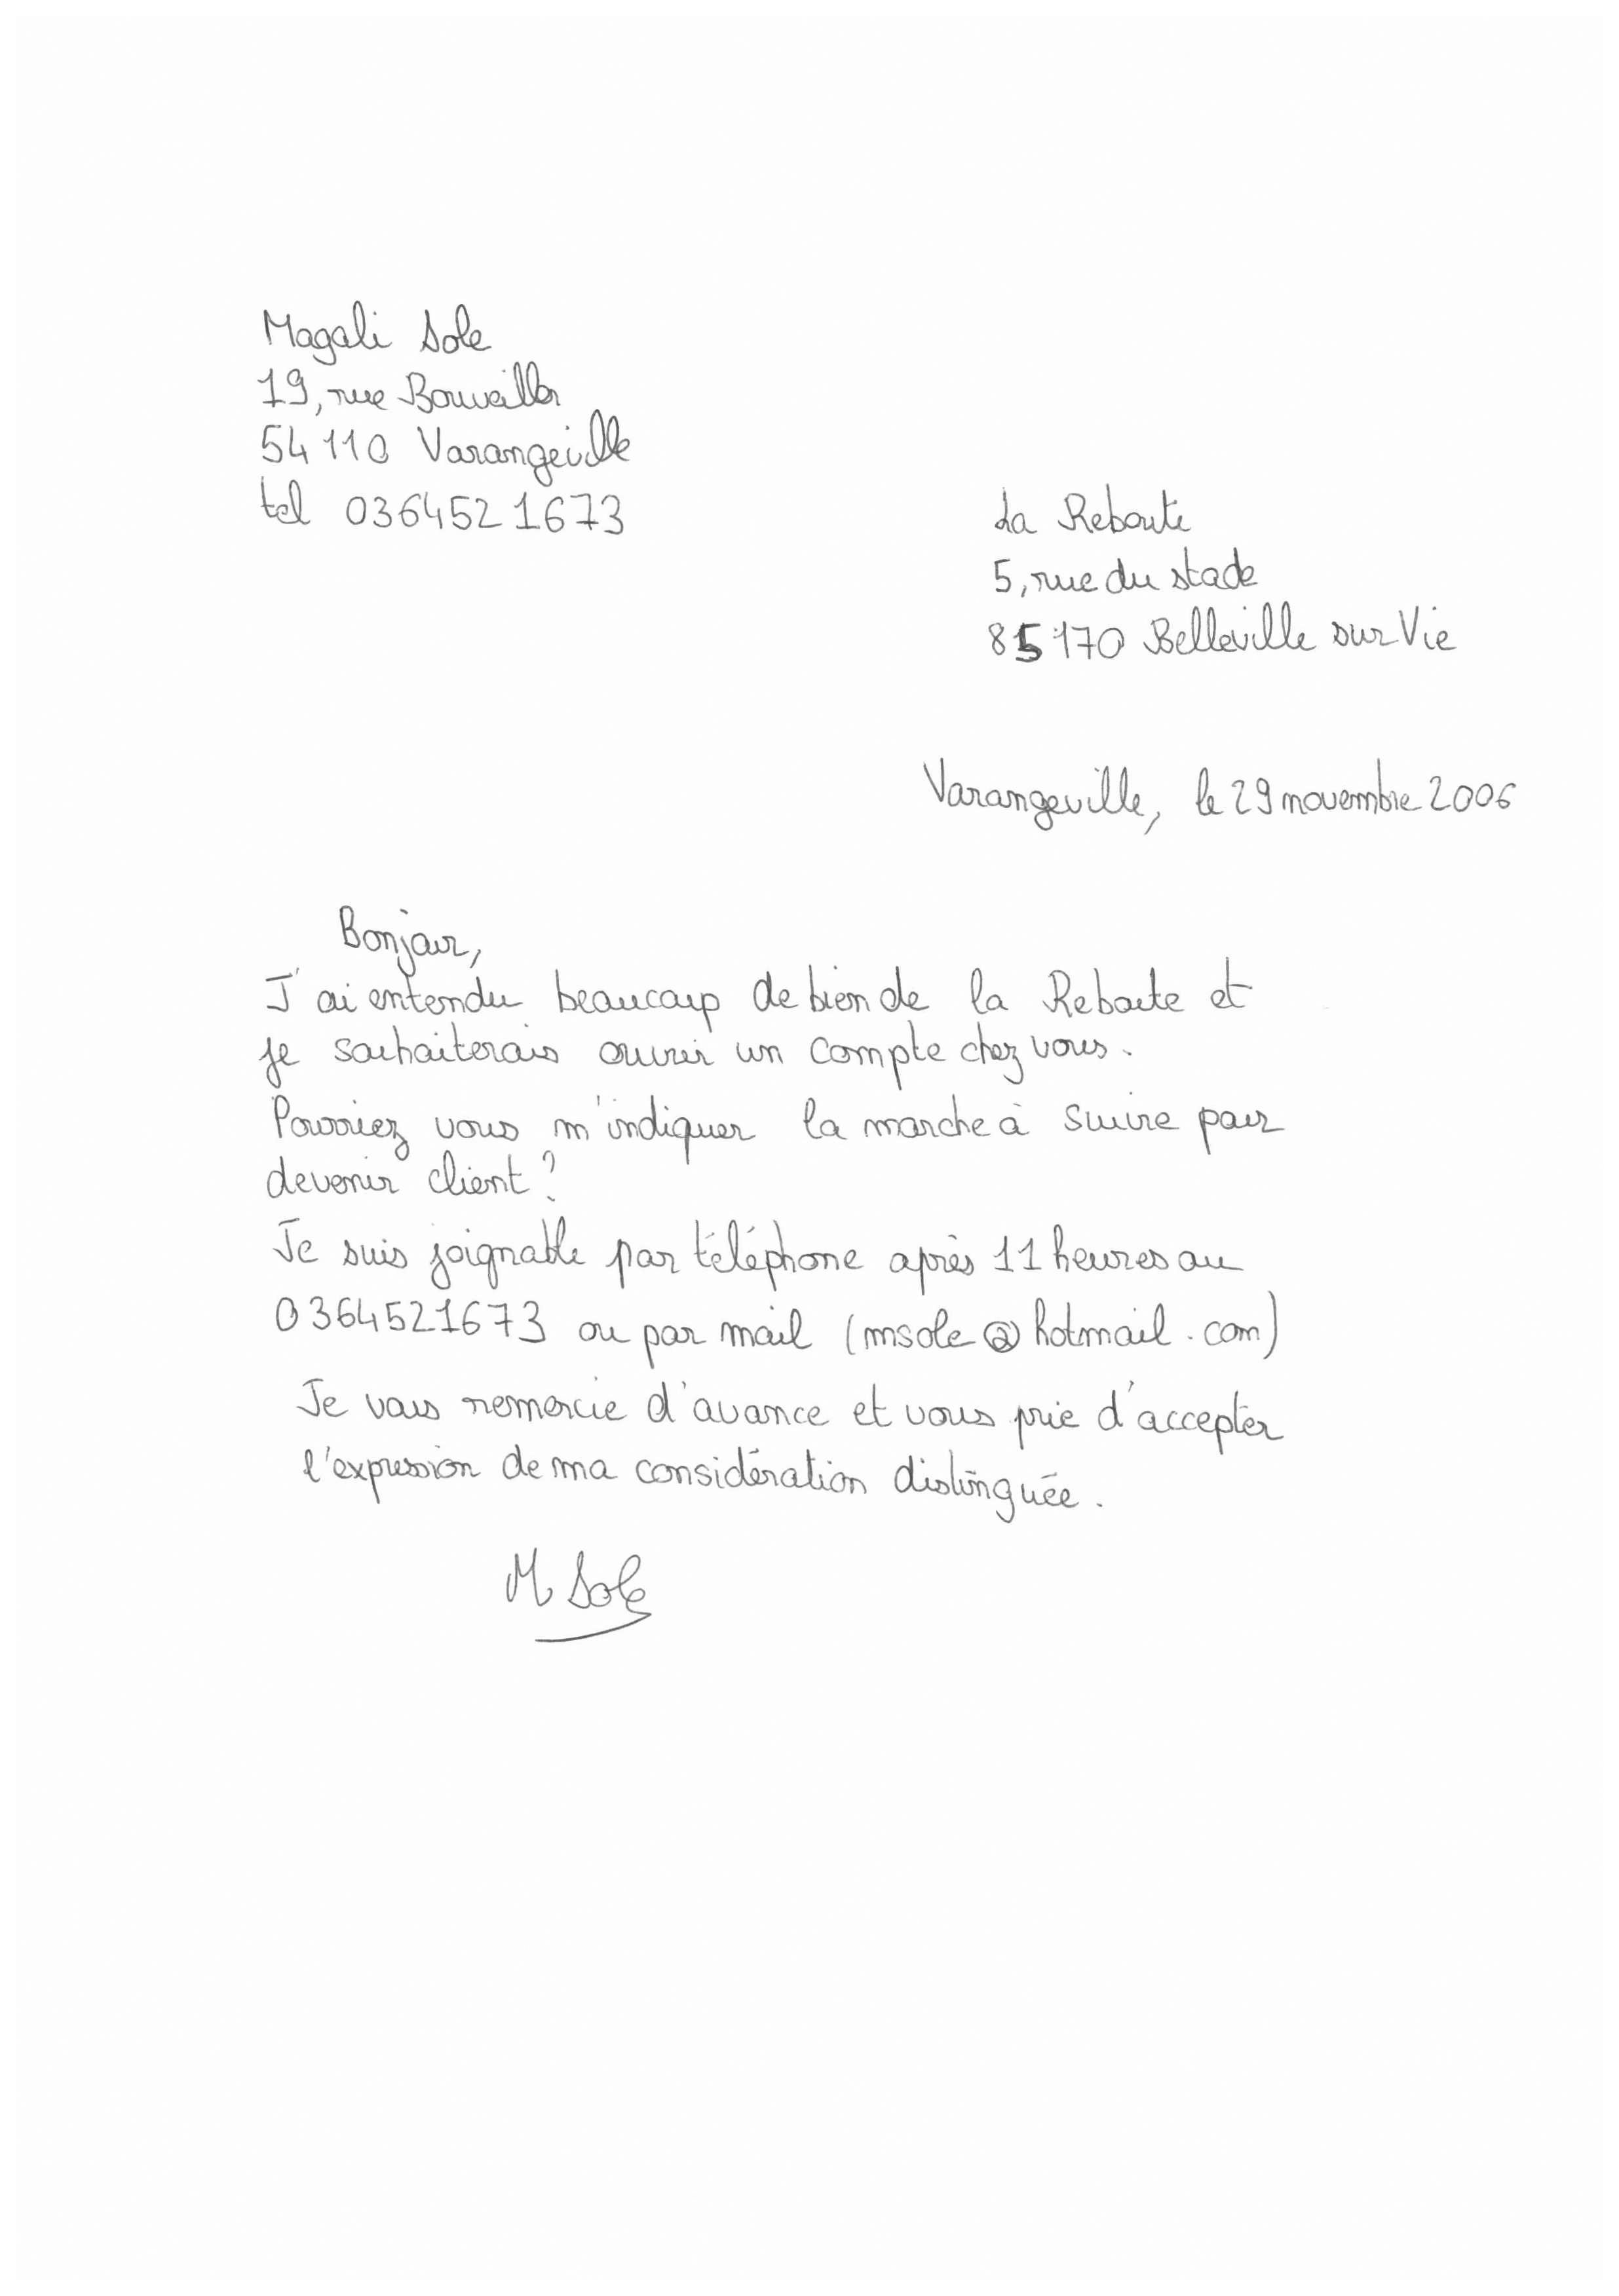 Magali Sole
19, rue
54 110 Varangeville
tel 0364521673
La Reboute
5, rue du stade
85 170 Belleville sur Vie
Varangeville, le 29 novembre 2006
Bonjour,
J'ai entendu beaucoup de bien de la Reboute et
je souhaiterais ouvrir un compte chez vous.
Pourriez vous m'indiquer la marche à suivre pour
devenir client ?
Je suis joignable par téléphone après 11 heures au
0364521673 ou par mail (msole@hotmail.com)
Je vous remercie d'avance et vous prie d'accepter
l'expression de ma considération distinguée.
M Sole